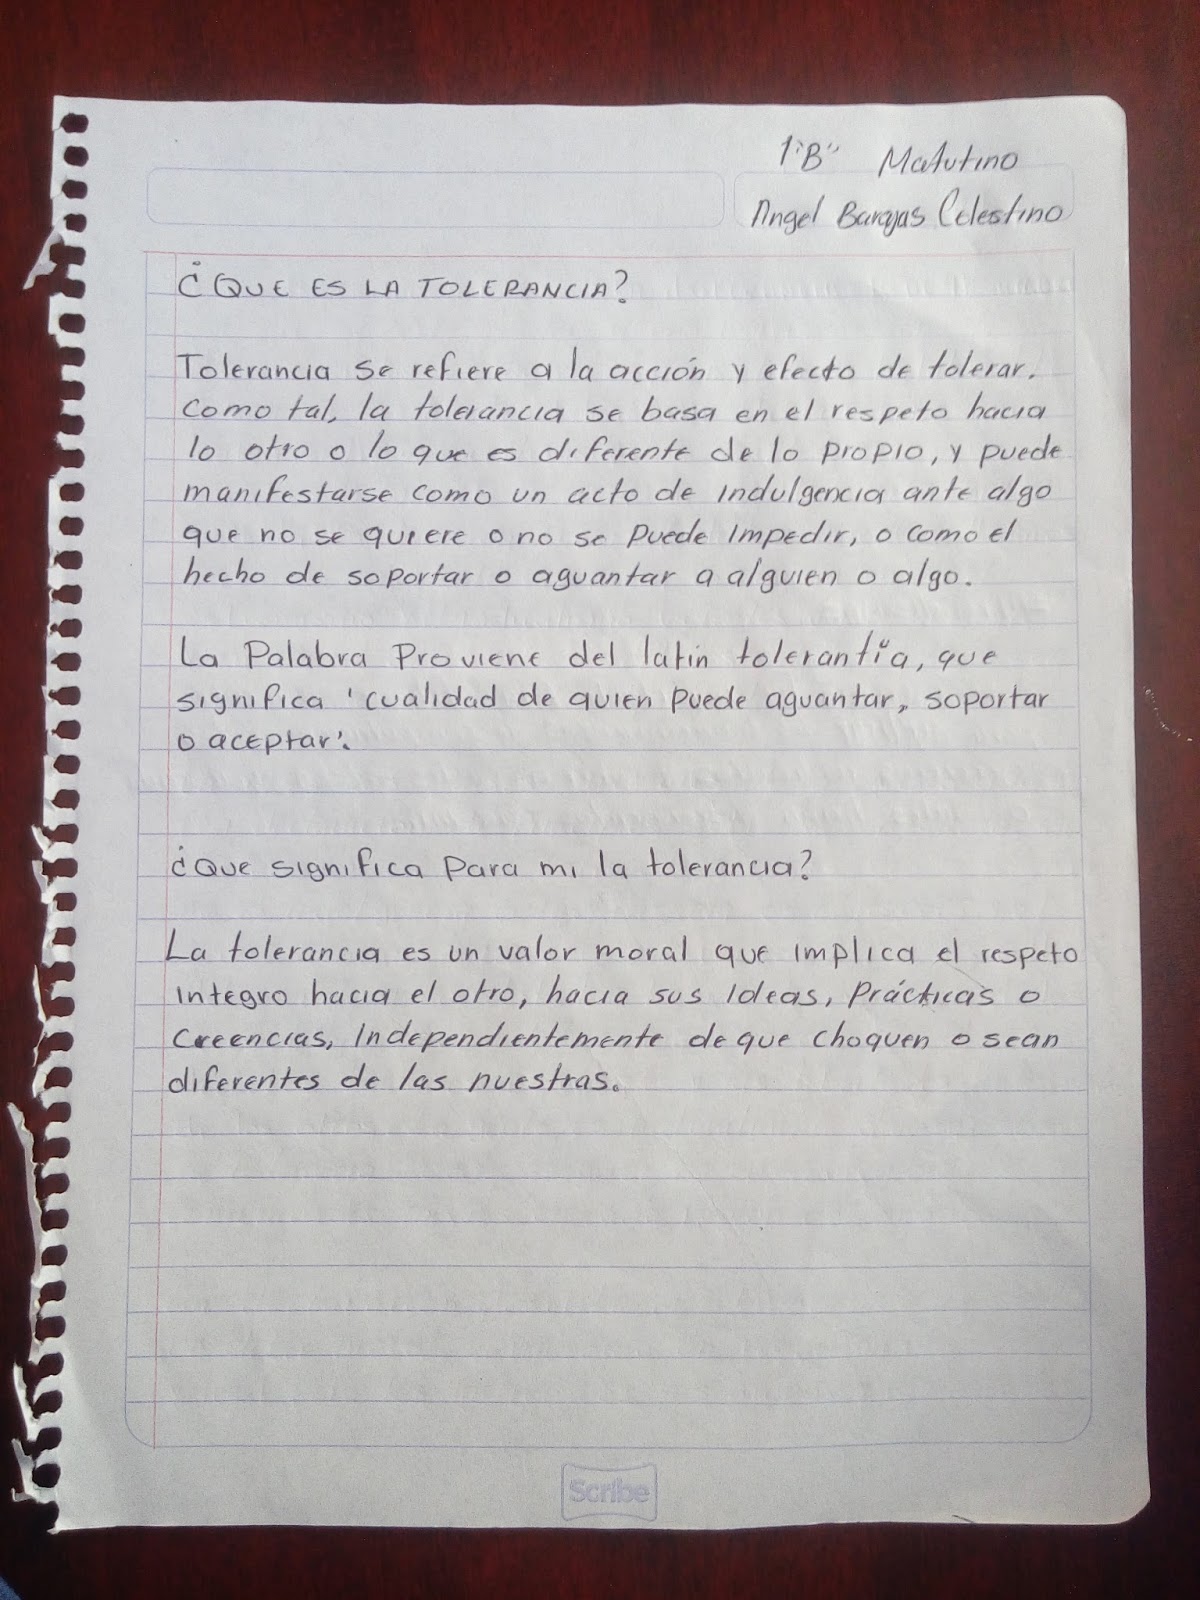 1"B" Matutino
Angel Barajas Celestino
¿QUE ES LA TOLERANCIA?
Tolerancia se refiere a la acción y efecto de tolerar.
Como tal, la tolerancia se basa en el respeto hacia
lo otro o lo que es diferente de lo propio, y puede
manifestarse como un acto de indulgencia ante algo
que no se quiere o no se puede impedir, o como el
hecho de soportar o aguantar a alguien o algo.
La Palabra Proviene del latín tolerantĭa, que
significa 'cualidad de quien puede aguantar, soportar
o aceptar'.
¿Que significa Para mi la tolerancia?
La tolerancia es un valor moral que implica el respeto
integro hacia el otro, hacia sus ideas, Prácticas o
Creencias, independientemente de que choquen o sean
diferentes de las nuestras.
Scribe